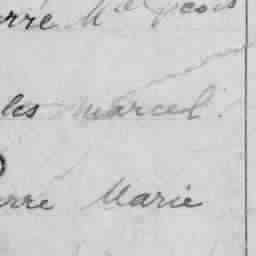 erre Mel
les marcel.
erre Marie